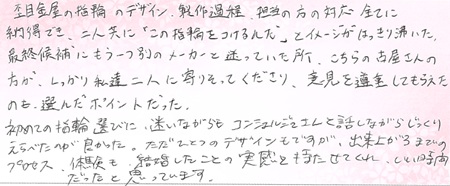 杢目金屋の指輪のデザイン、製作過程、担当の方の対応 全てに
納得でき、二人共に「この指輪をつけるんだ」とイメージがはっきり沸いた。
最終候補にもう一つ別のメーカーと迷っていた所、こちらの古屋さんの
方が、しっかり私達二人に寄りそってくださり、意見を尊重してもらえた
のも、選んだポイントだった。
初めての指輪選びに、迷いながらも コンシェルジュさんと話しながらじっくり
えらべたのが良かった。ただ一つのデザインもですが、出来上がるまでの
プロセス、体感も、結婚したことの実感を持たせてくれ、いい時間
だったと思っています。